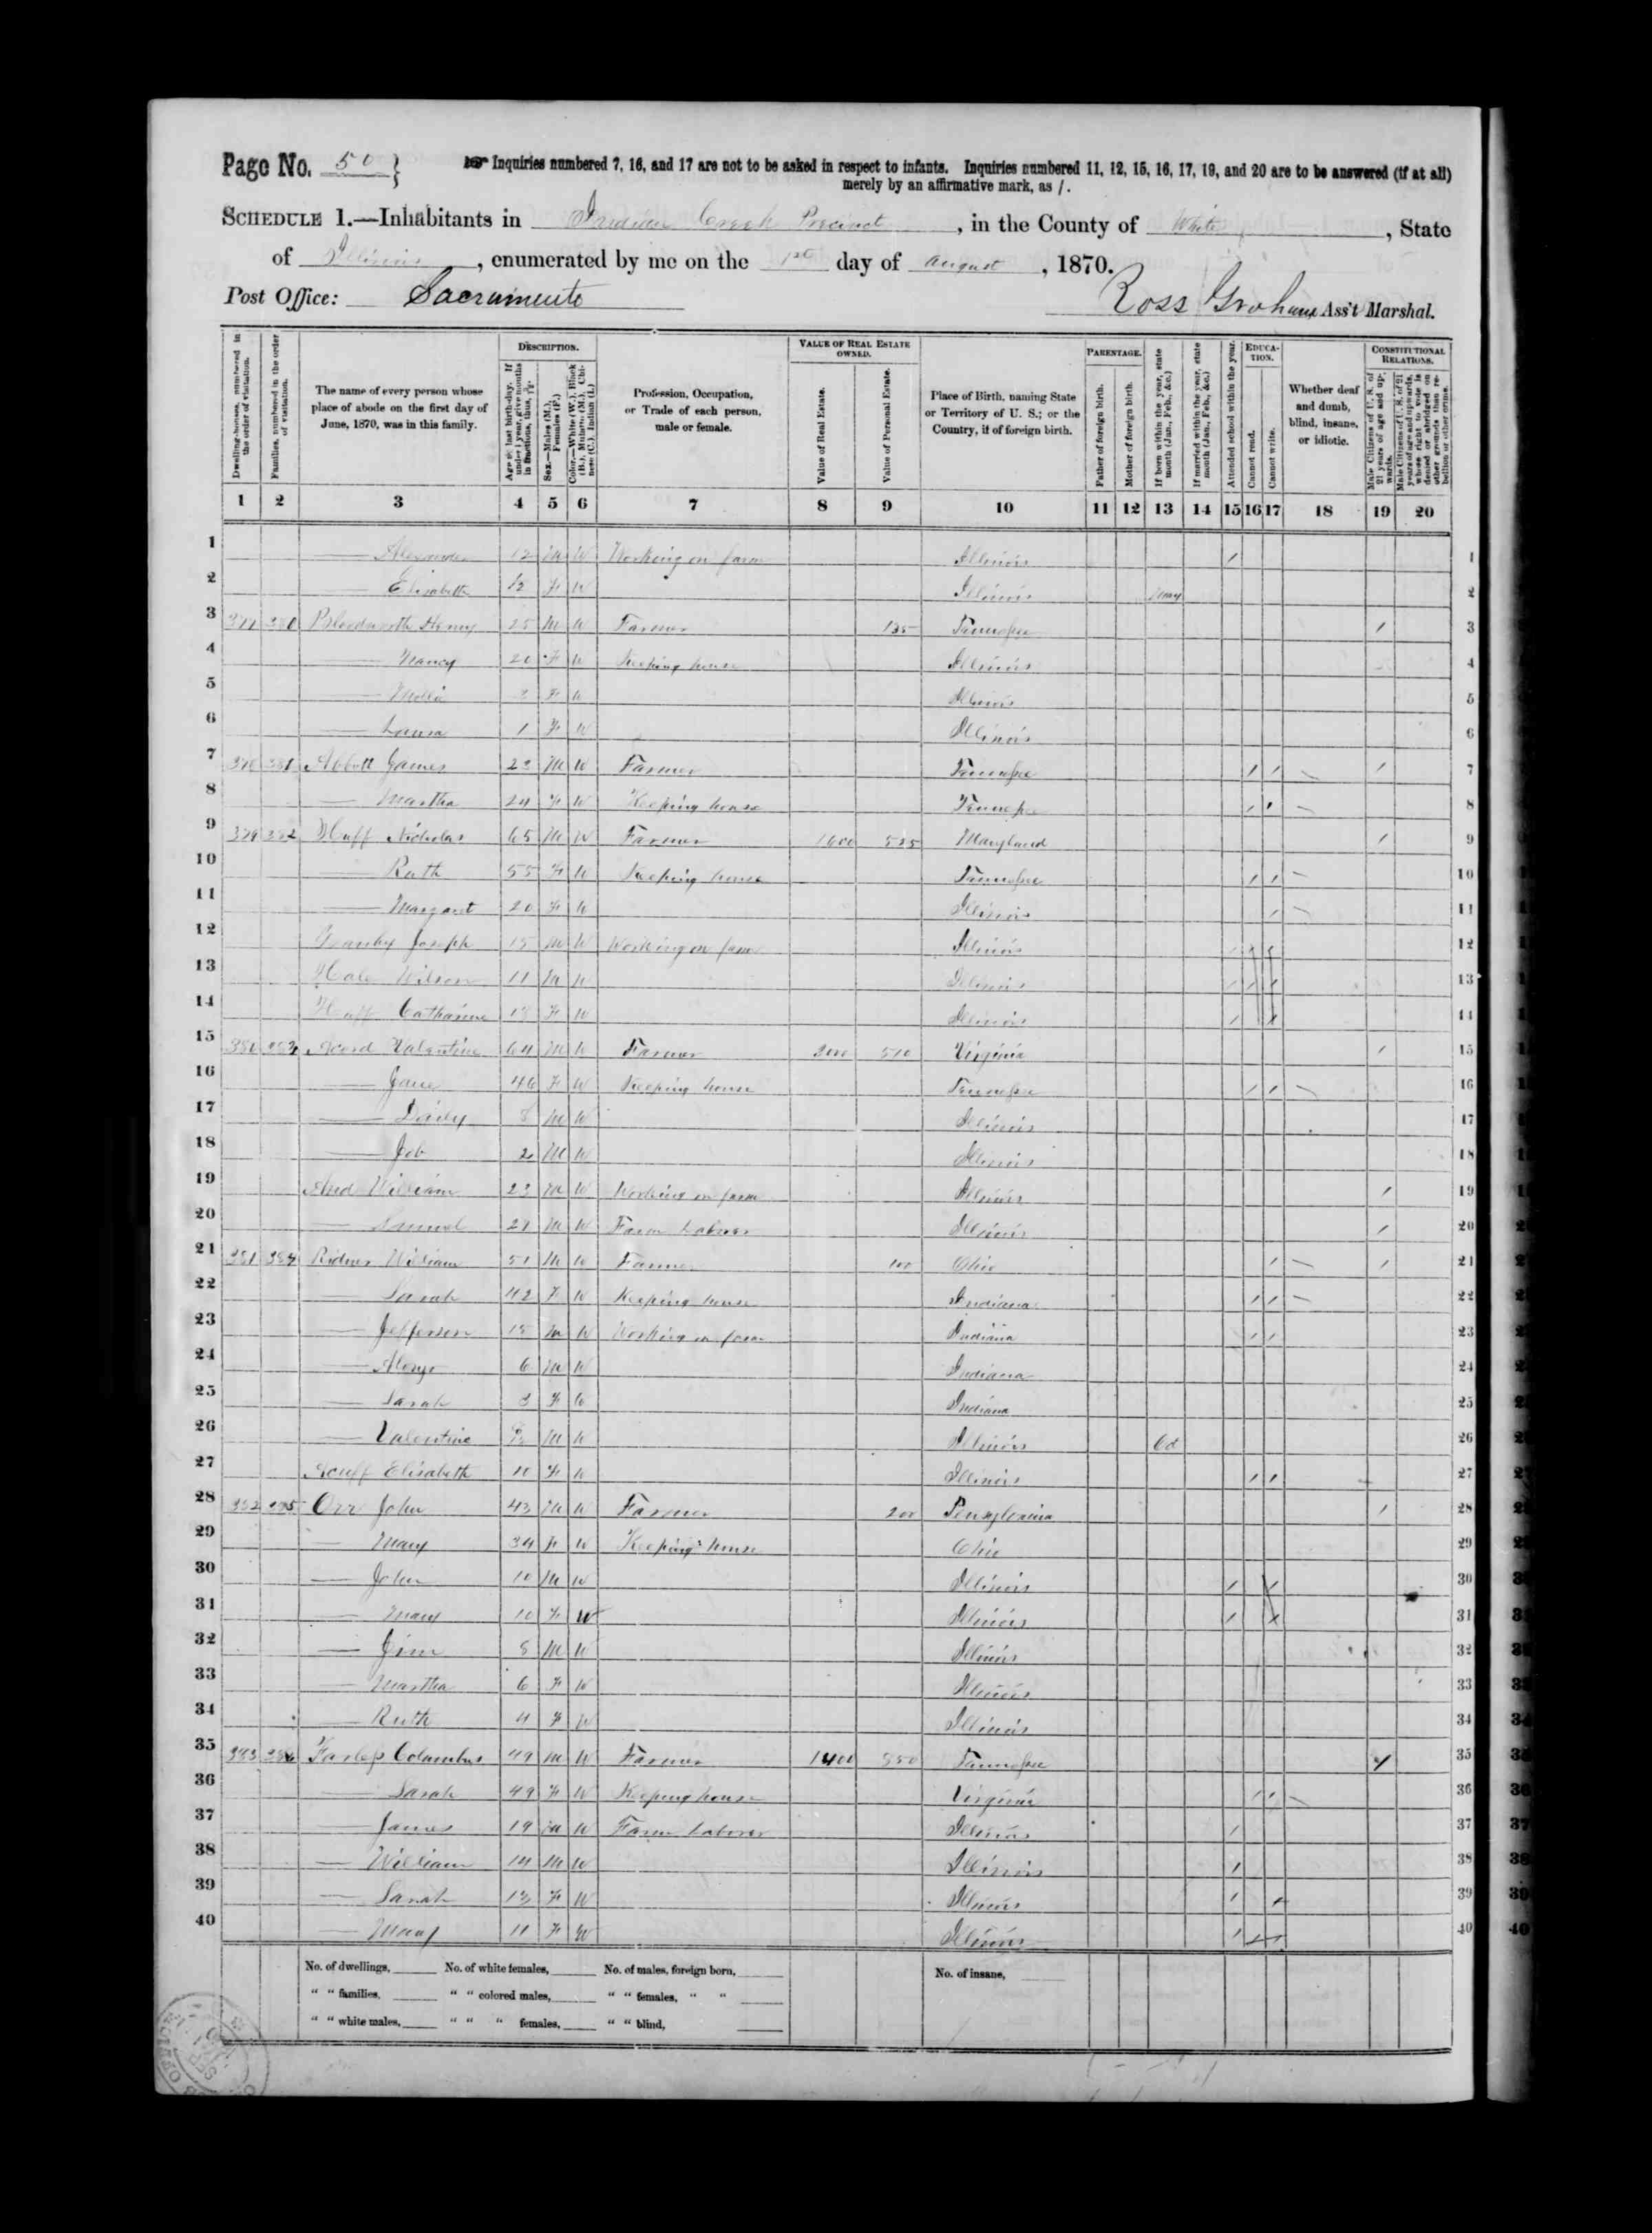 Page No. 50
Inquiries numbered 7, 16, and 17 are not to be asked in respect to infants. Inquiries numbered 11, 12, 15, 16, 17, 19, and 20 are to be answered (if at all)
merely by an affirmative mark, as /.
SCHEDULE 1.—Inhabitants in Indian Creek Precinct, in the County of White, State
of Illinois, enumerated by me on the 1st day of August, 1870.
Post Office: Sacramento
Ross Graham Ass't Marshal.
Dwelling-houses, numbered in the order of visitation.
Families, numbered in the order of visitation.
The name of every person whose place of abode on the first day of June, 1870, was in this family.
DESCRIPTION.
Age at last birth-day. If under 1 year, give months in fractions, thus, 3/12.
Sex.—Males (M.), Females (F.)
Color.—White (W.), Black (B.), Mulatto (M.), Chinese (C.), Indian (I.)
Profession, Occupation, or Trade of each person, male or female.
VALUE OF REAL ESTATE OWNED.
Value of Real Estate.
Value of Personal Estate.
Place of Birth, naming State or Territory of U. S.; or the Country, if of foreign birth.
PARENTAGE.
Father of foreign birth.
Mother of foreign birth.
If born within the year, state month (Jan., Feb., &c.)
If married within the year, state month (Jan., Feb., &c.)
Attended school within the year.
EDUCATION.
Cannot read.
Cannot write.
Whether deaf and dumb, blind, insane, or idiotic.
CONSTITUTIONAL RELATIONS.
Male Citizens of U. S. of 21 years of age and upwards.
Male Citizens of U. S. of 21 years of age and upwards, whose right to vote is denied or abridged on other grounds than rebellion or other crime.
1 2 3 4 5 6 7 8 9 10 11 12 13 14 15 16 17 18 19 20
1 — Alexander 12 M W Working on farm Illinois / 1
2 — Elisabeth F W Illinois May 2
3 Bloodworth Henry 25 M W Farmer 125 Tennessee / 3
4 — Nancy 20 F W Keeping house Illinois 4
5 — Mollie F W Illinois 5
6 — Laura 1 F W Illinois 6
7 378 381 Abbott James 23 M W Farmer Tennessee / / / 7
8 — Martha 24 F W Keeping house Tennessee / / 8
9 379 382 Huff Nicholas 65 M W Farmer 1600 525 Maryland / 9
10 — Ruth 55 F W Keeping house Tennessee / / 10
11 — Margaret 20 F W Illinois / 11
12 Joseph 15 M W Working on farm Illinois 12
13 Hale Wilson 11 M W Illinois / / / 13
14 Huff Catharine F W Illinois 14
15 380 383 Acord Valentine 64 M W Farmer 2000 510 Virginia / 15
16 — Jane 46 F W Keeping house Tennessee / / 16
17 — 8 M W Illinois 17
18 — Job 2 M W Illinois 18
19 William 23 M W Working on farm Illinois / 19
20 — Samuel 21 M W Farm Laborer Illinois / 20
21 381 384 William 51 M W Farmer 100 Ohio / / 21
22 — Sarah 42 F W Keeping house Indiana / / 22
23 — Jefferson 15 M W Working on farm Indiana / / 23
24 — Alonzo 6 M W Indiana 24
25 — Sarah 3 F W Indiana 25
26 — Valentine M W Illinois Oct 26
27 Acuff Elisabeth 10 F W Illinois / / 27
28 382 385 Orr John 43 M W Farmer 200 Pensylvania / 28
29 — Mary 34 F W Keeping house Ohio 29
30 — John 10 M W Illinois / / 30
31 — Mary 10 F W Illinois / 31
32 — Jim 8 M W Illinois 32
33 — Martha 6 F W Illinois 33
34 — Ruth 4 F W Illinois 34
35 383 386 Columbus 49 M W Farmer 1400 850 Tennessee / 35
36 — Sarah 49 F W Keeping house Virginia / / 36
37 — James 19 M W Farm Laborer Illinois / 37
38 — William 14 M W Illinois / 38
39 — Sarah 13 F W Illinois / / 39
40 — Mary 11 F W Illinois / 40
No. of dwellings, No. of white females, No. of males, foreign born, No. of insane,
" " families, " " colored males, " " females, " "
" " white males, " " " females, " " blind,